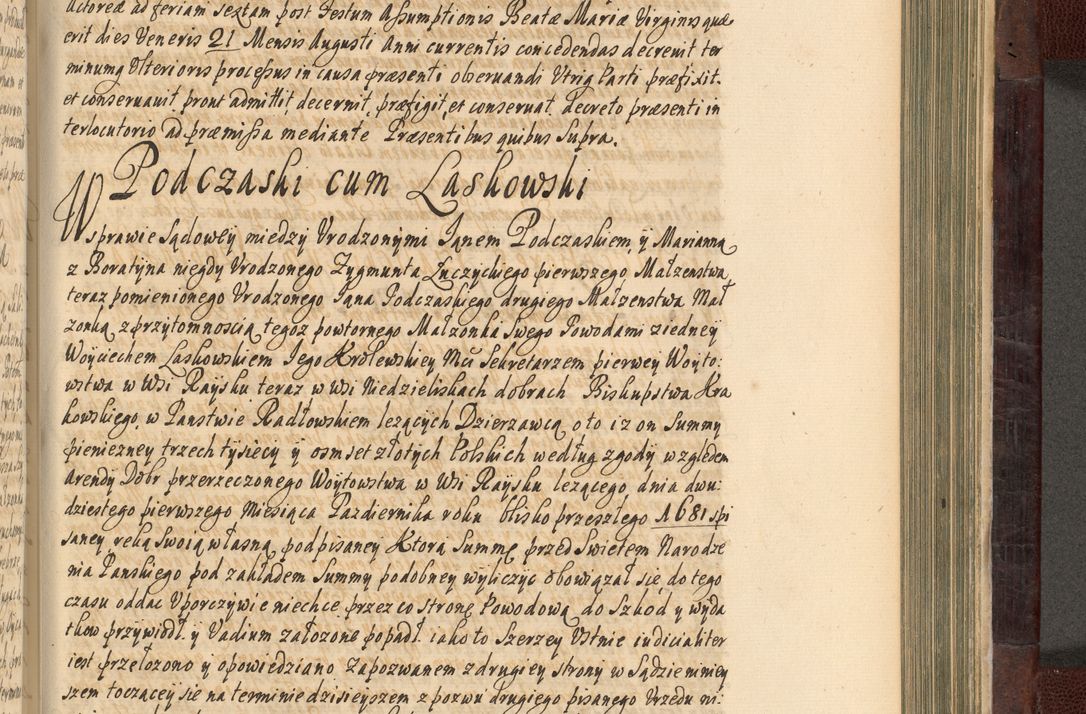 Actoreæ ad feriam sextam post Festum Assumptionis Beatæ Mariæ Virginis quæ
erit dies Veneris 21 Mensis Augusti Anni currentis concedendas decreuit ter
minumq Vlterioris processus in causa præsenti obseruandi Vtriq Parti præfixit.
et conseruauit, prout admittit, decernit, præfigit, et conseruat, decreto præsenti in
terlocutorio ad præmissa mediante, Præsentibus quibus Supra.
Podczaski cum Laskowski
W sprawie Sądowey między Vrodzonymi Ianem Podczaskiem, y Marianną
z Boratyna niegdy Vrodzonego Zygmunta Łuczyckiego pierwszego, Małzenstwa
teraz pomienionego Vrodzonego Iana Podczaskiego drugiego Małzenstwa Mał
zonką, z przytomnoscią tegoz powtornego Małzonka Swego Powodami z iedney
Woyciechem Laskowskiem Iego Krolewskiey Mci Sekretarzem pierwey Woyto:
wstwa w Wsi Raysku teraz w Wsi Niedzieliskach dobrach Biskupstwa Kra
kowskiego, w Panstwie Radłowskiem lezących Dzierzawcą, o to iz on Summy
pieniezney trzech tysięcy y osmset złotych Polskich według zgody wzgledem
Arendy Dobr przerzeczonego Woytowstwa w Wsi Raysku lezącego, dnia dwu:
dziestego pierwszego Miesiąca Pazdziernika roku blisko przeszłego 1681 spi
saney ręką swoią własną, podpisaney Ktorą Summę przed Swietem Narodze
nia Panskiego pod zakładem Summy podobney wyliczyc obowiązał się, do tego
czasu oddac Vporczywie niechce przez co stronę Powodową, do Szkod y wyda
tkow przywiodł y Vadium załozone popadł iako to Szerzey Vstnie iudicialiter
iest przełozono y opowiedziano Zapozwanem z drugiey strony w Sądzie ninieÿ
szem toczącey się na terminie dzisieyszem z pozwu drugiego pisanego Vrzedu ni: